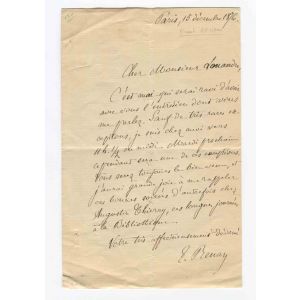 Paris, 15 décembre 1876.
Cher Monsieur Louandre,
C'est moi qui serai ravi d'avoir
avec vous l'entretien dont vous
me parlez. Sauf de très rares ex-
ceptions, je suis chez moi vers
de midi. Mardi prochain
cependant sera une de ces exceptions.
Vous serez toujours le bienvenu, et
j'aurai grande joie à me rappeler
ces bonnes soirées d'autrefois chez
Augustin Thierry, ces longues journées
à la Bibliothèque.
Votre très affectueusement dévoué
E. Renan